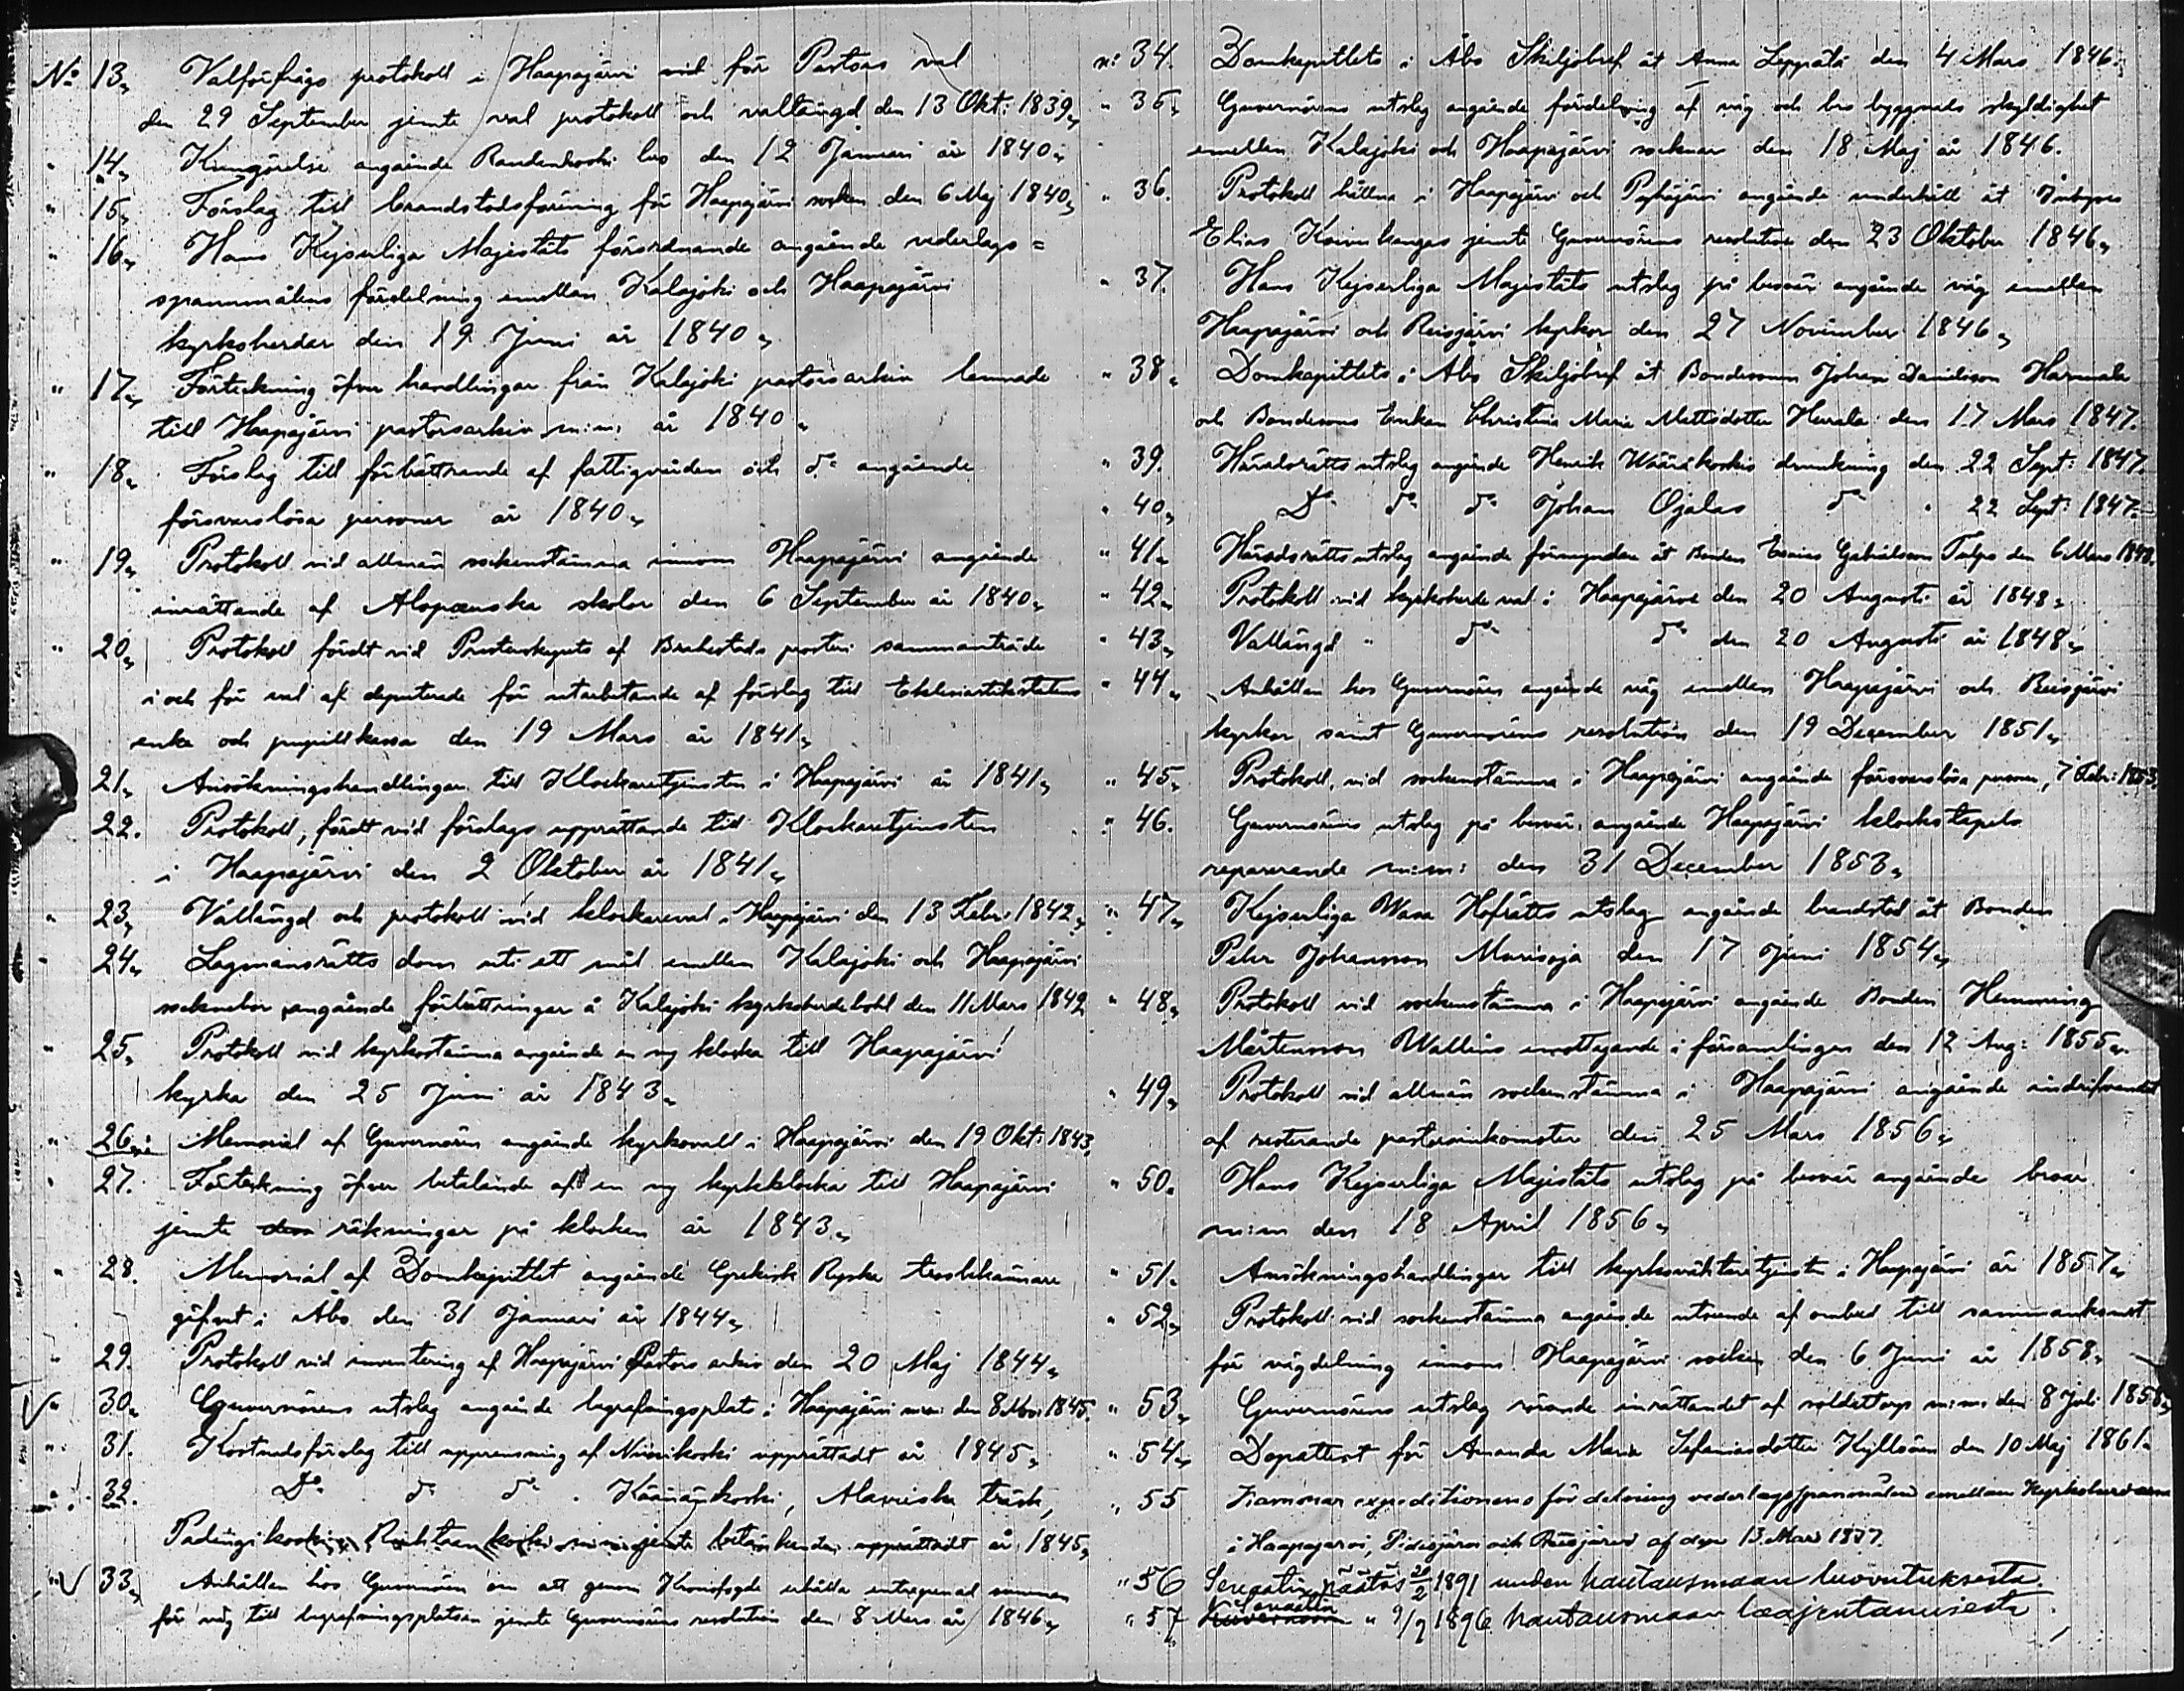 No 13. Valförfrågs protokoll i Haapajärvi vid för Pastors val
den 29 September jemte val protokoll och vallängd den 13 Okt: 1839.
" 14. Kungörelse angående Raudankoski bro den 12 Januari år 1840.
" 15. Förslag till brandstodsförening för Haapajärvi socken den 6 Maj 1840.
" 16. Hans Kejserliga Majestäts förordnande angående vederlags=
spannmålens fördelning emellan Kalajoki och Haapajärvi
kyrkoherdar den 19 Juni år 1840.
" 17. Förteckning öfver handlingar från Kalajoki pastorsarkiv lemnade
till Haapajärvi pastorsarkiv m:m: år 1840.
" 18. Förslag till förbättrande af fattigvården och do angående
försvarslösa personer år 1840.
" 19. Protokoll vid allmän sockenstämma innom Haapajärvi angående
inrättande af Alopæuska skolor den 6 September år 1840.
" 20. Protokoll fördt vid Presterskapets af Brahestads prosteri sammanträde
i och för val af deputerade för utarbetande af förslag till Eklesiastikstatens
enke och pupillkassa den 19 Mars år 1841.
21. Ansökningshandlingar till Klockaretjensten i Haapajärvi år 1841.
22. Protokoll, fördt vid förslags upprättande till Klockaretjensten
i Haapajärvi den 2 Oktober år 1841.
" 23. Vallängd och protokoll vid klockareval i Haapajärvi den 13 Febr: 1842.
" 24. Lagmansrätts dom uti ett mål emellan Kalajoki och Haapajärvi
socknebor angående förbättringar å Kalajoki kyrkoherdebohl den 11 Mars 1842
" 25. Protokoll vid kyrkostämma angående en ny klocka till Haapajärvi
kyrka den 25 Juni år 1843.
" 26. Memorial af Guvernören angående kyrkovall i Haapajärvi den 19 Okt: 1843.
" 27. Förteckning öfver betalande af en ny kyrkklocka till Haapajärvi
jemte den räkningar på klockan år 1843.
" 28. Memorial af Domkapitlet angående Grekisk Ryska trosbekännare
gifvet i Åbo den 31 Januari år 1844.
" 29. Protokoll vid inventering af Haapajärvi Pastors arkiv den 20 Maj 1844.
" 30. Guvernörens utslag angående begrafningsplats i Haapajärvi m:m: den 8 Nov: 1845.
" 31. Kostnadsförslag till upprensning af Niinikoski upprättadt år 1845.
" 32. Do do do Käinäskoski, Alavieska träsk,
Padingikoski, koski m:m: jemte betänkande upprättadt år 1845.
" 33. Anhållan hos Guvernören om att genom Kronofogde erhålla entreprenad summan
för väg till begrafningsplatsen jemte Guvernörens resolution den 8 Mars år 1846.
n: 34. Domkapitlets i Åbo Skiljobref åt Anna Leppälä den 4 Mars 1846.
" 35. Guvernörens utslag angående fördelning af väg och bro byggnads skyldighet
emellan Kalajoki och Haapajärvi socknar den 18 Maj år 1846.
" 36. Protokoll hållna i Haapajärvi och Pyhäjärvi angående underhåll åt
Elias Koivukangas jemte Guvernörens resolution den 23 Oktober 1846.
" 37. Hans Kejserliga Majestäts utslag på besvär angående väg emellan
Haapajärvi och Reisjärvi kyrkor den 27 November 1846.
" 38. Domkapitlets i Åbo Skiljobref åt Bondesonen Johan Danielsson Harmala
och Bondesons Enkan Christina Maria Mattsdotter Hurula den 17 Mars 1847.
" 39. Häradsrätts utslag angående Henrik Wääräkoskis drunkning den 22 Sept: 1847.
" 40. Do do do Johan Ojalas do " 22 Sept: 1847.
" 41. Häradsrätts utslag angående förmyndare åt Bonden Esaias Gabrielsson Tolpo den 6 Mars 1848.
" 42. Protokoll vid kyrkoherde val i Haapajärvi den 20 Augusti år 1848.
" 43. Vallängd " do do den 20 Augusti år 1848.
" 44. Anhållan hos Guvernören angående väg emellan Haapajärvi och Reisjärvi
kyrkor samt Guvernörens resolution den 19 December 1851.
" 45. Protokoll, vid sockenstämma i Haapajärvi angående försvarslösa personer, 7 Febr: 1853.
" 46. Guvernörens utslag på besvär, angående Haapajärvi klockstapels
reparerande m:m: den 31 December 1853.
" 47. Kejserliga Wasa Hofrätts utslag angående brandstod åt Bonden
Pehr Johansson Marisoja den 17 Juni 1854.
" 48. Protokoll vid sockenstämma i Haapajärvi angående Bonden Hemming
Mårtensson Wallins emottagande i församlingen den 12 Aug: 1855.
" 49. Protokoll vid allmän sockenstämma i Haapajärvi angående indrifvandet
af resterande pastorsinkomster den 25 Mars 1856.
" 50. Hans Kejserliga Majestäts utslag på besvär angående broar
m:m den 18 April 1856.
" 51. Ansökningshandlingar till kyrkovaktaretjensten i Haapajärvi år 1857.
" 52. Protokoll vid sockenstämma angående utseende af ombud till sammankomst
för vägdelning innom Haapajärvi socken den 6 Juni år 1858.
" 53. Guvernörens utslag rörande inrättandet af soldattorp m:m: den 8 Juli 1858.
" 54. Dopattest för Amanda Maria Stefansdotter Kyllönen den 10 Maj 1861.
" 55 Kammar expeditionens fördelning vederlagsspannmålen emellan Kyrkoherdarne
i Haapajärvi, Pidisjärvi och Reisjärvi af den 13 Mars 1877.
" 56 Senaatin päätös 20/2 1891 uuden hautausmaan luovutuksesta.
" 57 Kuvernöörin Senaatin " 9/9 1896 hautausmaan laajentamisesta.